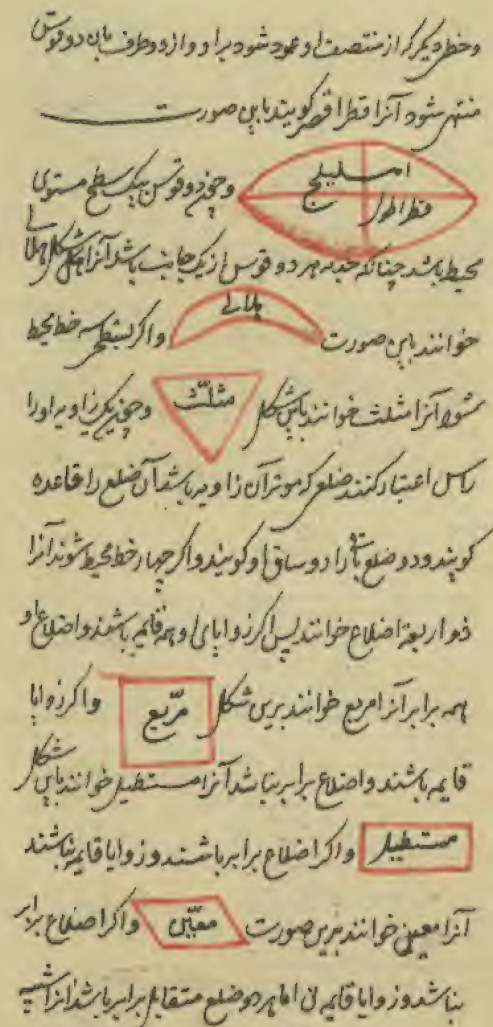 وخطی دیکر که از منتصف او عمود شود براو و از دو طرف بان دو قوس
منتهی شود آنرا قطر اقصر کویند باین صورت
اهلیلج
قطر اطول
و چون دو قوس بیک سطح مستوی
محیط باشد چنانکه حدبه هر دو قوس از یک جانب باشد آنرا شکل هلالی
خوانند باین صورت
هلالی
و اکر بسطحی سه خط محیط
شود آنرا مثلث خوانند باین شکل
مثلّث
و چون یک زاویه او را
راس اعتبار کنند ضلعی که موتر آن زاویه باشد آن ضلع را قاعده
کویند و دو ضلع را دو ساق او کویند و اکر چهار خط محیط شوند آنرا
ذو اربعة اضلاع خوانند پس اکر زوایای او همه قایمه باشند و اضلاع او
همه برابر آنرا مربع خوانند برین شکل
مربّع
و اکر زوایا
قایمه باشند و اضلاع برابر نباشد آنرا مستطیل خوانند باین شکل
مستطیل
و اکر اضلاع برابر باشند و زوایا قایمه نباشند
آنرا معین خوانند برین صورت
معیّن
و اکر اضلاع برابر
نباشد و زوایا قایمه نی اما هر دو ضلع متقابل برابر باشد آنرا شبیه